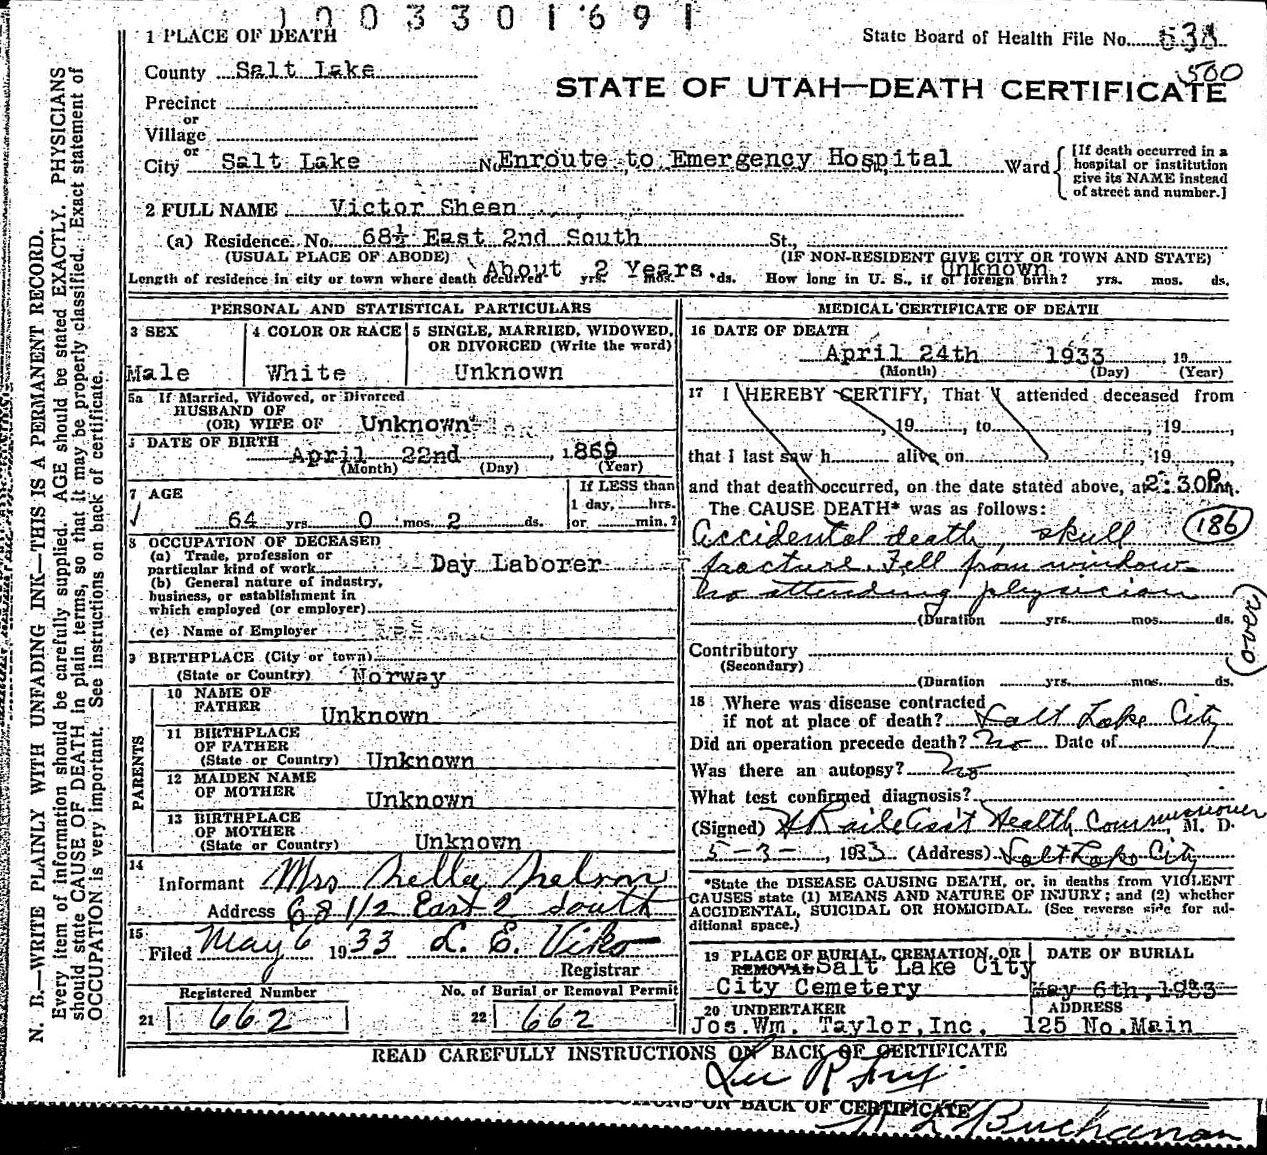 1003301691
State Board of Health File No. 638
500
STATE OF UTAH—DEATH CERTIFICATE
1 PLACE OF DEATH
County Salt Lake
Precinct
or
Village
or
City Salt Lake No. Enroute to Emergency Hospital Ward
[If death occurred in a
hospital or institution
give its NAME instead
of street and number.]
2 FULL NAME Victor Sheen
(a) Residence. No. 68½ East 2nd South St.,
(USUAL PLACE OF ABODE) (IF NON-RESIDENT GIVE CITY OR TOWN AND STATE)
Length of residence in city or town where death occurred About 2 Years. yrs. mos. ds. How long in U. S., if of foreign birth? Unknown yrs. mos. ds.
PERSONAL AND STATISTICAL PARTICULARS
3 SEX
Male
4 COLOR OR RACE
White
5 SINGLE, MARRIED, WIDOWED,
OR DIVORCED (Write the word)
Unknown
5a If Married, Widowed, or Divorced
HUSBAND OF
(OR) WIFE OF Unknown
DATE OF BIRTH
April 22nd, 1869
(Month) (Day) (Year)
7 AGE
64 yrs. 0 mos. 2 ds.
If LESS than
1 day, hrs.
or min.?
8 OCCUPATION OF DECEASED
(a) Trade, profession or
particular kind of work Day Laborer
(b) General nature of industry,
business, or establishment in
which employed (or employer)
(c) Name of Employer
9 BIRTHPLACE (City or town)
(State or Country) Norway
PARENTS
10 NAME OF
FATHER Unknown
11 BIRTHPLACE
OF FATHER
(State or Country) Unknown
12 MAIDEN NAME
OF MOTHER Unknown
13 BIRTHPLACE
OF MOTHER
(State or Country) Unknown
14
Informant Mrs Nella Nelson
Address 68 1/2 East 2 South
15
Filed May 6 1933 L. E. Viko
Registrar
Registered Number
21 662
No. of Burial or Removal Permit
22 662
MEDICAL CERTIFICATE OF DEATH
16 DATE OF DEATH
April 24th 1933, 19
(Month) (Day) (Year)
17 I HEREBY CERTIFY, That I attended deceased from
, 19 , to , 19 ,
that I last saw h alive on , 19 ,
and that death occurred, on the date stated above, at 2:30P m.
The CAUSE DEATH* was as follows:
186
Accidental death, skull
fracture. Fell from window
No attending physician
(Duration yrs. mos. ds.
(over)
Contributory
(Secondary)
(Duration yrs. mos. ds.
18 Where was disease contracted
if not at place of death? Salt Lake City
Did an operation precede death? No Date of
Was there an autopsy? No
What test confirmed diagnosis?
(Signed) Asst Health Commissioner, M. D.
5-3-, 1933 (Address) Salt Lake City
*State the DISEASE CAUSING DEATH, or, in deaths from VIOLENT
CAUSES state (1) MEANS AND NATURE OF INJURY; and (2) whether
ACCIDENTAL, SUICIDAL OR HOMICIDAL. (See reverse side for ad-
ditional space.)
19 PLACE OF BURIAL, CREMATION, OR
REMOVAL Salt Lake City
City Cemetery
DATE OF BURIAL
May 6th, 1933
20 UNDERTAKER
Jos. Wm. Taylor, Inc.
ADDRESS
125 No. Main
READ CAREFULLY INSTRUCTIONS ON BACK OF CERTIFICATE
ON BACK OF CERTIFICATE
Buchanan
N. B.—WRITE PLAINLY WITH UNFADING INK—THIS IS A PERMANENT RECORD.
Every item of information should be carefully supplied. AGE should be stated EXACTLY. PHYSICIANS
should state CAUSE OF DEATH in plain terms, so that it may be properly classified. Exact statement of
OCCUPATION is very important. See instructions on back of certificate.